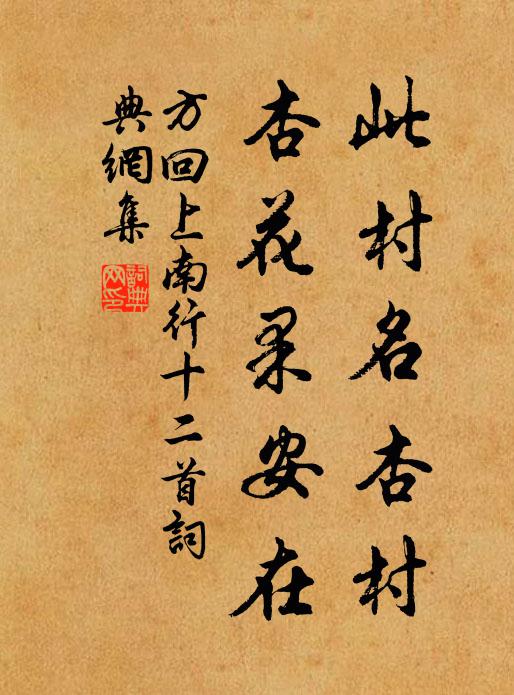 此村名杏村
杏花果安在
方回上南行十二首詞
典網集
詞典網印